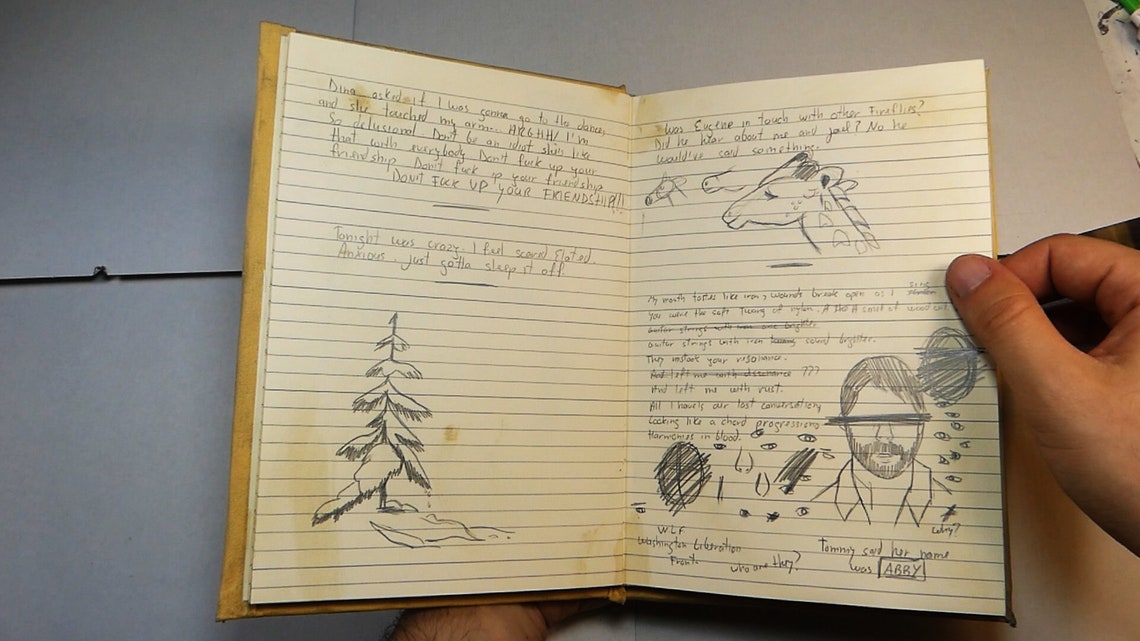 Dina asked if I was gonna go to the dance,
and she touched my arm. ARGHH! I'm
So delusional. Don't be an idiot she's like
that with everybody. Don't fuck up your
friendship. Don't fuck up your friendship.
DON'T FUCK UP YOUR FRIENDSHIP!!!
Tonight was crazy. I feel scared. Elated.
Anxious. Just gotta sleep it off.
Was Eugene in touch with other Fireflies?
Did he hear about me and Joel? No he
would've said something.
My mouth tastes like iron, wounds break open as I sing
You were the soft twang of nylon. A the smell of wood
guitar strings with iron are brighter
guitar strings with iron sound brighter.
They mistook your resonance.
And left me with dischance ???
And left me with rust.
All I have is our last conversation,
Looking like a chord progression,
Harmonies in blood.
why?
WLF
Washington Liberation
Front.
who are they?
Tommy said her name
was ABBY